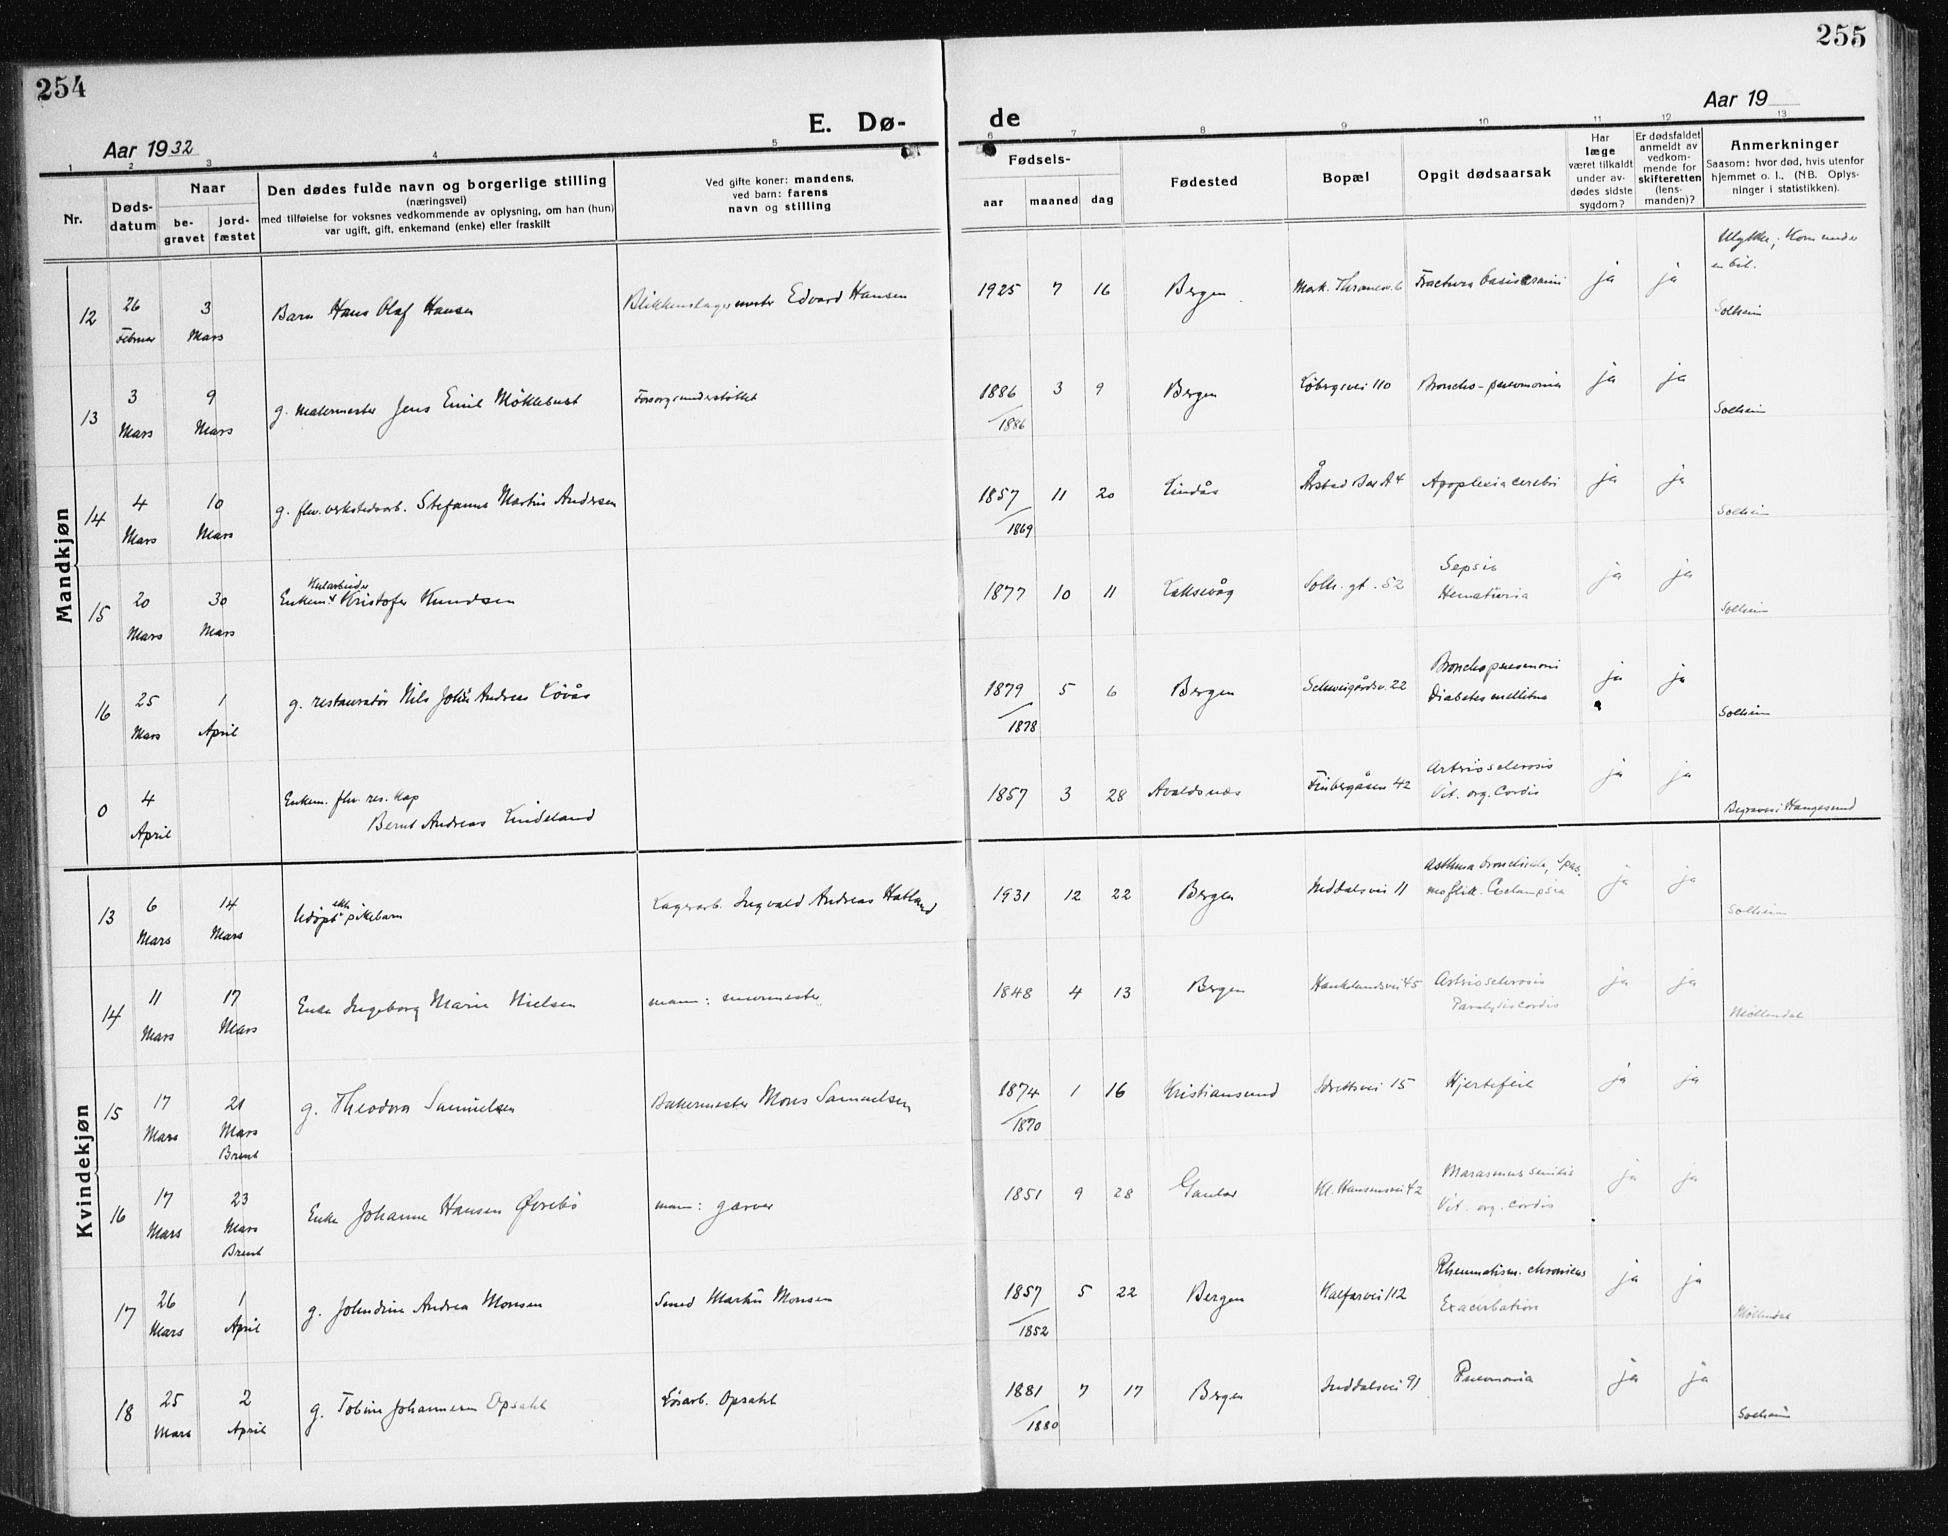 254
255
E. Dø-
de
Aar 1932
Aar 19
1
2
3
4
5
6
7
8
9
10
11
12
13
Nr.
Døds-
datum
Naar
be-
gravet
jord-
fæstet
Den dødes fulde navn og borgerlige stilling
(næringsvei)
med tilføielse for voksnes vedkommende av oplysning, om han (hun)
var ugift, gift, enkemand (enke) eller fraskilt
Ved gifte koner: mandens,
ved barn: farens
navn og stilling
Fødsels-
aar
maaned
dag
Fødested
Bopæl
Opgit dødsaarsak
Har
læge
været tilkaldt
under av-
dødes sidste
sygdom?
Er dødsfaldet
anmeldt av
vedkom-
mende for
skifteretten
(lens-
manden)?
Anmerkninger
Saasom: hvor død, hvis utenfor
hjemmet o. l., (NB. Oplys-
ninger i statistikken).
Mandkjøn
12
26
Februar
3
Mars
Barn Hans Olaf Hansen
Blikkenslagermester Edvard Hansen
1925 7 16
Bergen
Mark. Thranesv. 6
Fractura basis cranii
ja
ja
Ulykke; Kom under
en bil.
Solheim
13
3
Mars
9
Mars
g. malermester Jens Emil Møklebust
Forsorgsunderstøttet
1886 3 9
/1886
Bergen
Løbergsvei 110
Broncho-pneumonia
ja
ja
Solheim
14
4
Mars
10
Mars
g. fhv. verkstedsarb. Stefanus Martin Andersen
1857 11 20
/1869
Lindås
Årstad Bar A 4
Apoplexia cerebri
ja
ja
Solheim
15
20
Mars
30
Mars
Kularbeider
Enkem. Kristofer Knudsen
1877 10 11
Laksevåg
Solh. gt. 52
Sepsis
Hematuria
ja
ja
Solheim
16
25
Mars
1
April
g. restauratør Nils Johs Andreas Løvås
1879 5 6
/1878
Bergen
Schweigårdsv. 22
Bronchopneumoni
Diabetes mellitus
ja
ja
Solheim
0
4
April
Enkem. fhv. res. kap
Bernt Andreas Lindeland
1857 3 28
Avaldsnes
Finbergåsen 42
Artriosclerosis
Vit. org. Cordis
ja
ja
Begraves i Haugesund
Kvindekjøn
13
6
Mars
14
Mars
ekte
Udøpt pikebarn
Lagerarb. Ingvald Andreas Hatland
1931 12 22
Bergen
Inddalsvei 11
Asthma bronchiale, Spas-
mofili. Eclampsia
ja
ja
Solheim
14
11
Mars
17
Mars
Enke Ingeborg Marie Nielsen
mann: murmester
1848 4 13
Bergen
Haukelandsvei 45
Artriosclerosis
Paralysis cordis
ja
ja
Møllendal
15
17
Mars
21
Mars
Brent
g. Theodora Samuelsen
Bakermester Mons Samuelsen
1874 1 16
/1870
Kristiansund
Idrettsvei 15
Hjertefeil
ja
ja
16
17
Mars
23
Mars
Brent
Enke Johanne Hansen Øvrebø
mann: garver
1851 9 28
Gaular
Kl. Hansensvei 42
Marasmus senilis
Vit. org. cordis
ja
ja
17
26
Mars
1
April
g. Johndine Andrea Monsen
Smed Martin Monsen
1857 5 22
/1852
Bergen
Kalfarvei 112
Rheumatism. chronicus
Exacerbation
ja
ja
Møllendal
18
25
Mars
2
April
g. Tobine Johannesen Opsahl
Løsarb. Opsahl
1881 7 17
/1880
Bergen
Inddalsvei 91
Pneumonia
ja
ja
Solheim